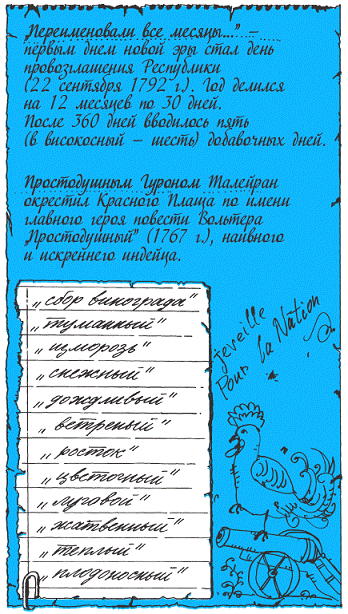 „Переименовали все месяцы...” —
первым днем новой эры стал день
провозглашения Республики
(22 сентября 1792 г.). Год делился
на 12 месяцев по 30 дней.
После 360 дней вводилось пять
(в високосный — шесть) добавочных дней.
Простодушным Гуроном Талейран
окрестил Красного Плаща по имени
главного героя повести Вольтера
„Простодушный” (1767 г.), наивного
и искреннего индейца.
„сбор винограда”
„туманный”
„изморозь”
„снежный”
„дождливый”
„ветреный”
„росток”
„цветочный”
„луговой”
„жатвенный”
„теплый”
„плодоносный”
Jeveille
Pour la Nation